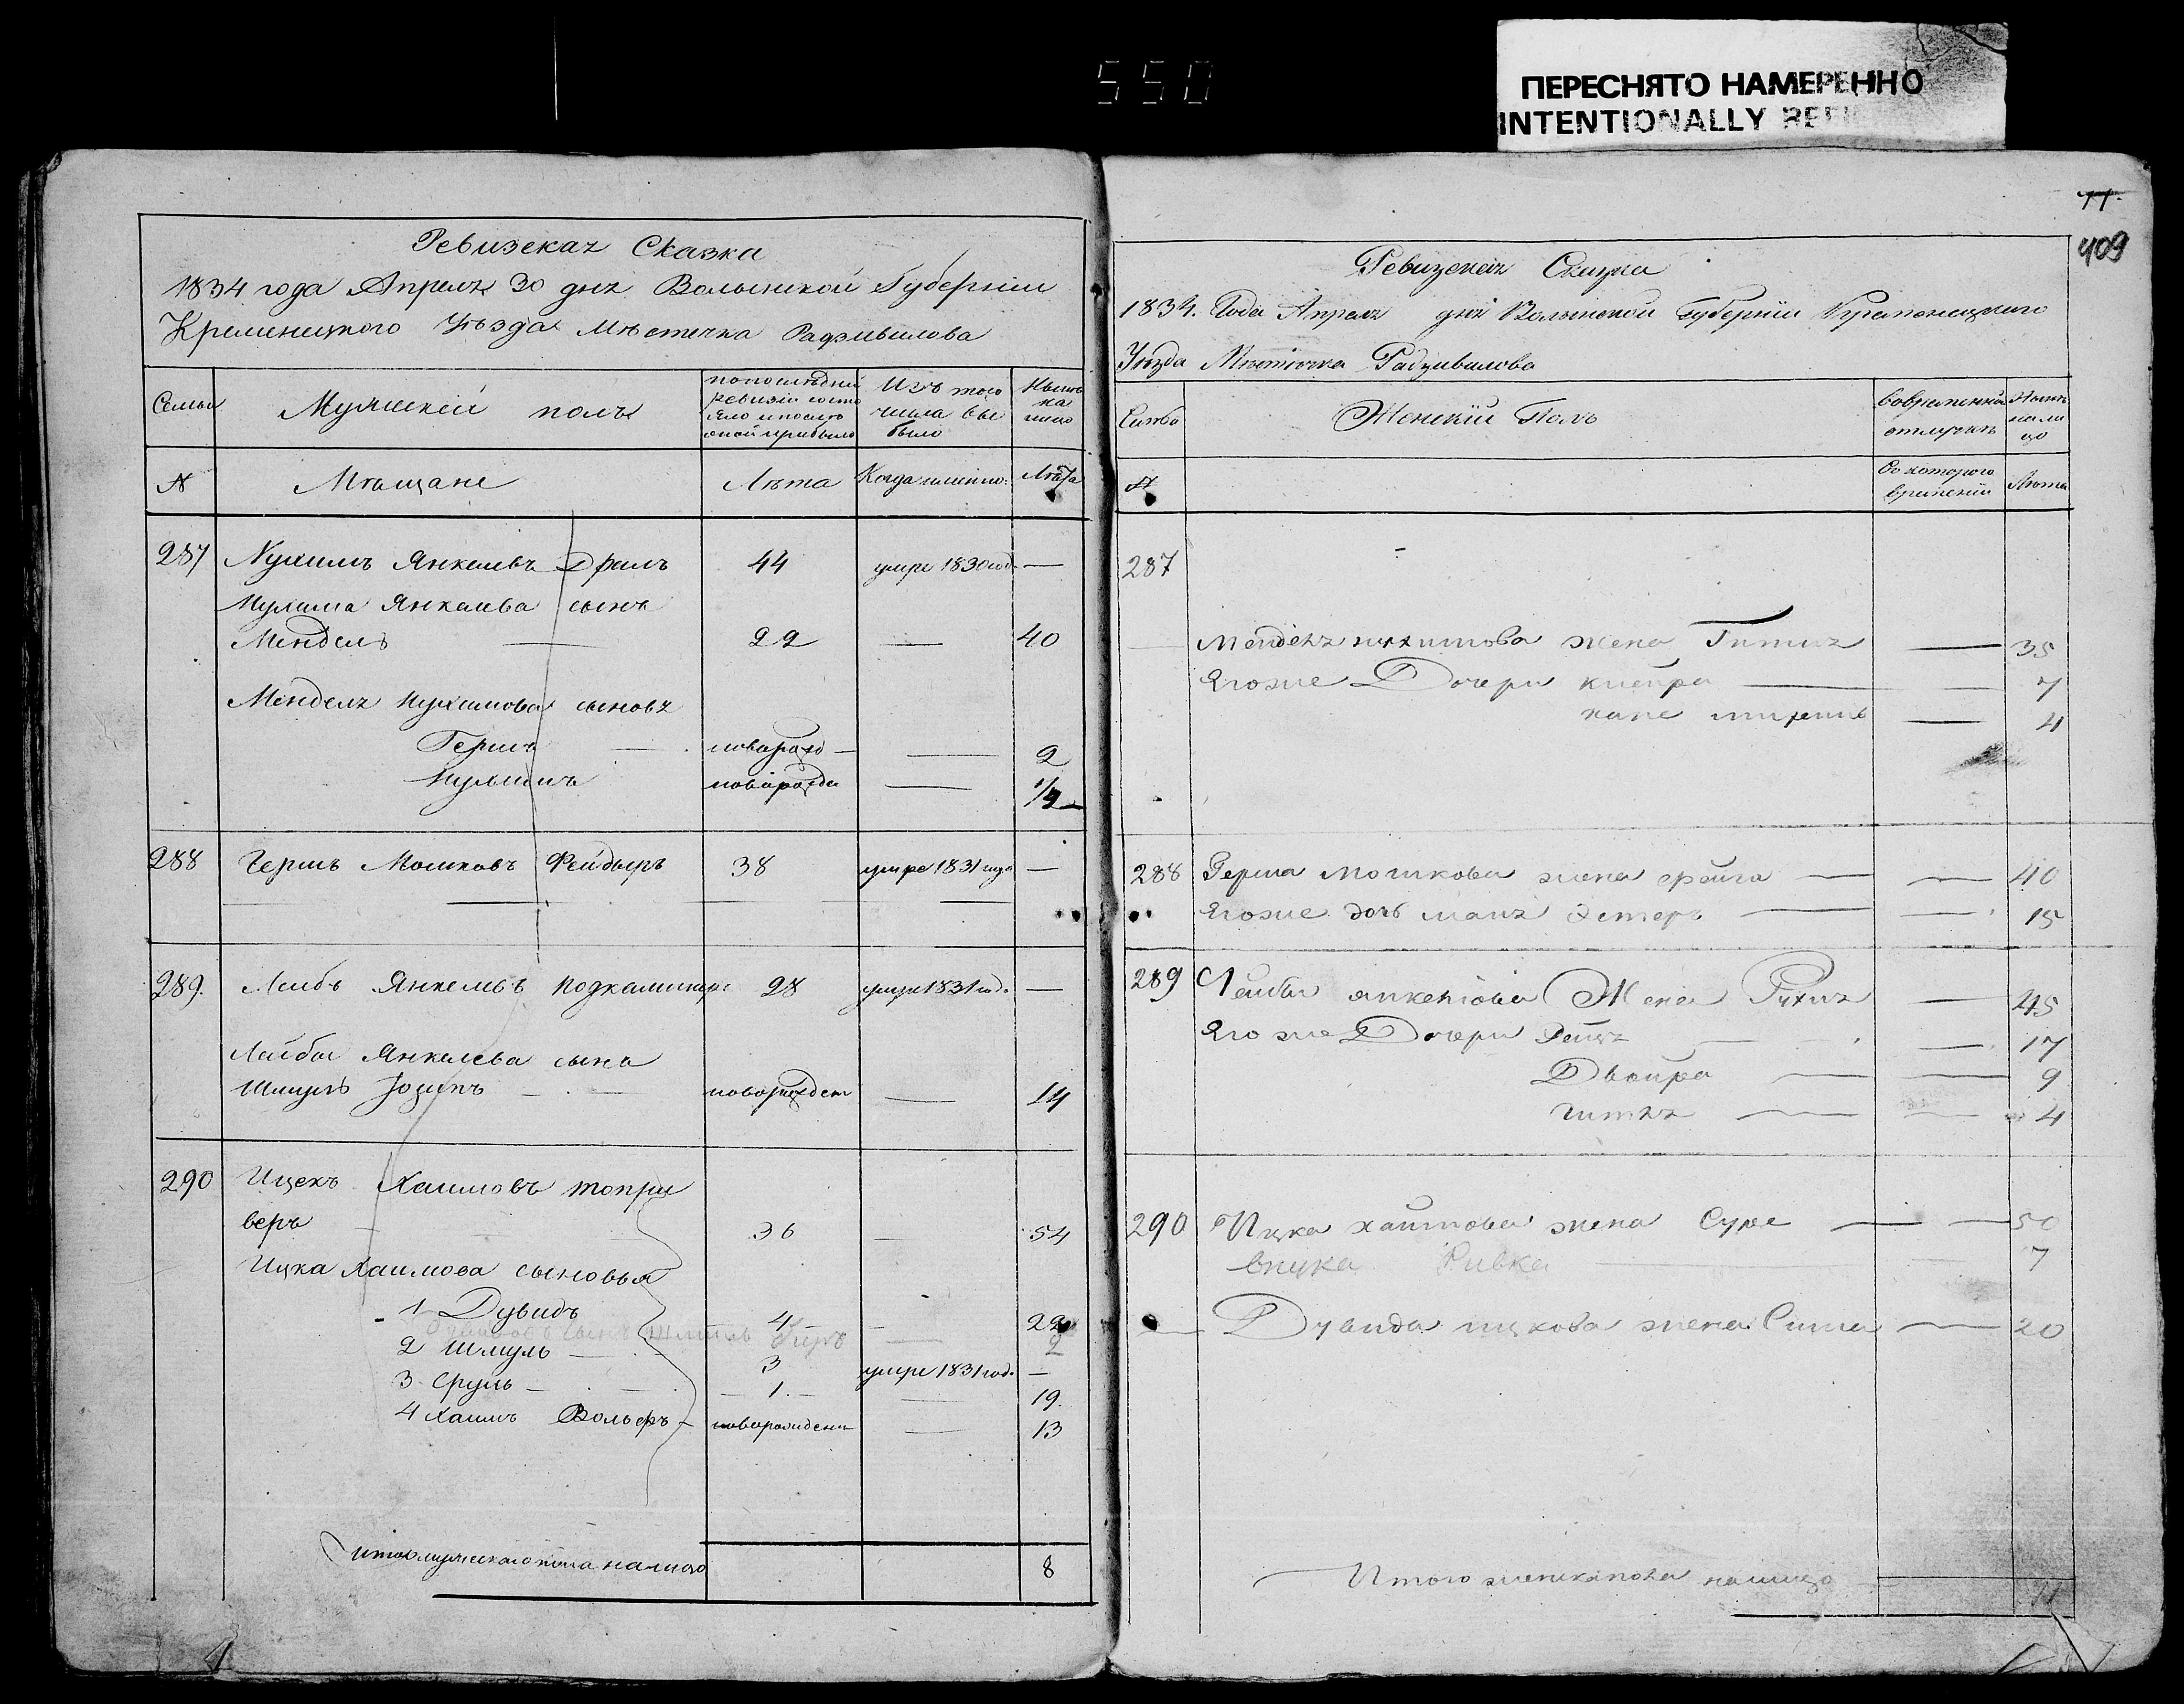 550
ПЕРЕСНЯТО НАМЕРЕННО
INTENTIONALLY
Ревизская Сказка
1834 года Апреля 30 дня Волынской Губернии
Кременецкого Уѣзда Мѣстечка Радзивилова
Семьи
Мужескій полъ
по последней
ревизіи состо
яло и после
оной прибыло
Изъ того
числа вы
было
Нынѣ
на
лицо
№
Мѣщане
Лѣта
Когда именно
Лѣта
287 Нухимъ Янкелевъ Дралъ 44 умре 1830 год. —
Нухима Янкелева сынъ
Мендель — 22 — 40
Менделя Нухимова сыновя
Гершъ — новорожд — — 2
Нухимъ новорожде — 1/2
288 Гершъ Мошковъ Фейдыръ 38 умре 1831 года —
289. Леибъ Янкелевъ 28 умре 1831 год. —
Лейбы Янкелева сынъ
Шмуль Іозипъ — новорожден — 14
290 Ицекъ Хаимовъ топри
веръ 36 — 54
Ицка Хаимова сыновья
1 Дувидъ 4 — 22
сынъ 2
2 Шмуль — 3 умре 1831 год. —
3 Сруль — 1 — 19.
4 Хаимъ Вольфъ — новорожденн — 13
Итого мужескаго пола налицо 8
11.
409
Ревизская Сказка
1834. Года Апреля дня Волынской Губерніи Кременецкого
Уезда Местечка Радзивилова
Семьи
Женскій Полъ
Вовременной
отлучке
Ныне
на ли
цо
№
Съ которого
времени
Лета
287
Менделя нухимова жена Гитля — 35
Его же Дочери кейтра — 7
хане — 4
288 Герша мошкова жена фейга — 40
Его же дочь маля Эстеръ — 15
289 Лейбы янкелова Жена Рухля — 45
Его же Дочери Рейзя — 17
Двойра — 9
гитля — 4
290 Ицка хаимова жена Суре — 50
внука Ривка — 7
Дувида ицкова жена Сима — 20
Итого женска пола налицо 11